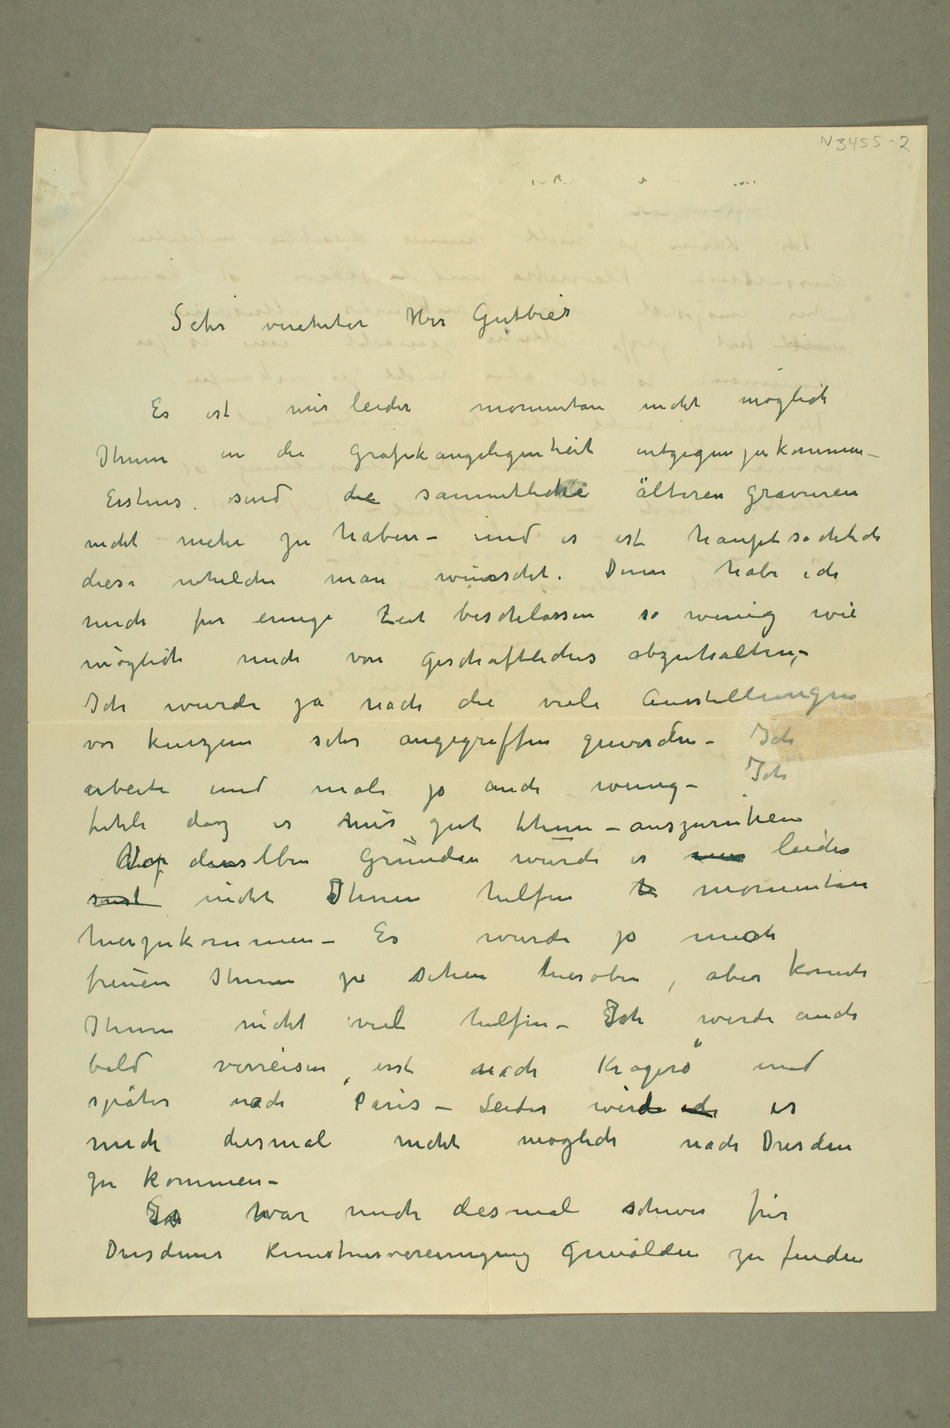 N 3455-2
Sehr verehrter Herr Gutbier
Es ist mir leider momentan nicht möglich
Ihnen in die Grafikangelegenheit entgegenzukommen –
Erstens sind die sammtliche älteren Gravuren
nicht mehr zu haben – und es ist hauptsächlich
diese whelche man wünscht. Denn habe ich
mich für einige Zeit beschlossen so wenig wie
möglich mich von geschäftliches abzuhalten, –
Ich wurde ja nach die viele Ausstellungen
vor kurzem sehr angegriffen geworden – Ich
arbeite und male ja auch wenig – Ich
fühle daz es mir gut thun – auszuruhen
Aus denselben Gründen würde es leider
nicht Ihnen helfen momentan
hierzukommen – Es wurde ja mich
freuen Ihnen zu sehen hieroben, aber konnte
Ihnen nicht viel helfen – Ich werde auch
bald verreisen, erst nach Kragerö und
später nach Paris – Leider wird ich es
mich diesmal nicht möglich nach Dresden
zu kommen –
Es war mich diesmal schwer für
Dresdener Kunstnervereinigung Gemälden zu finden